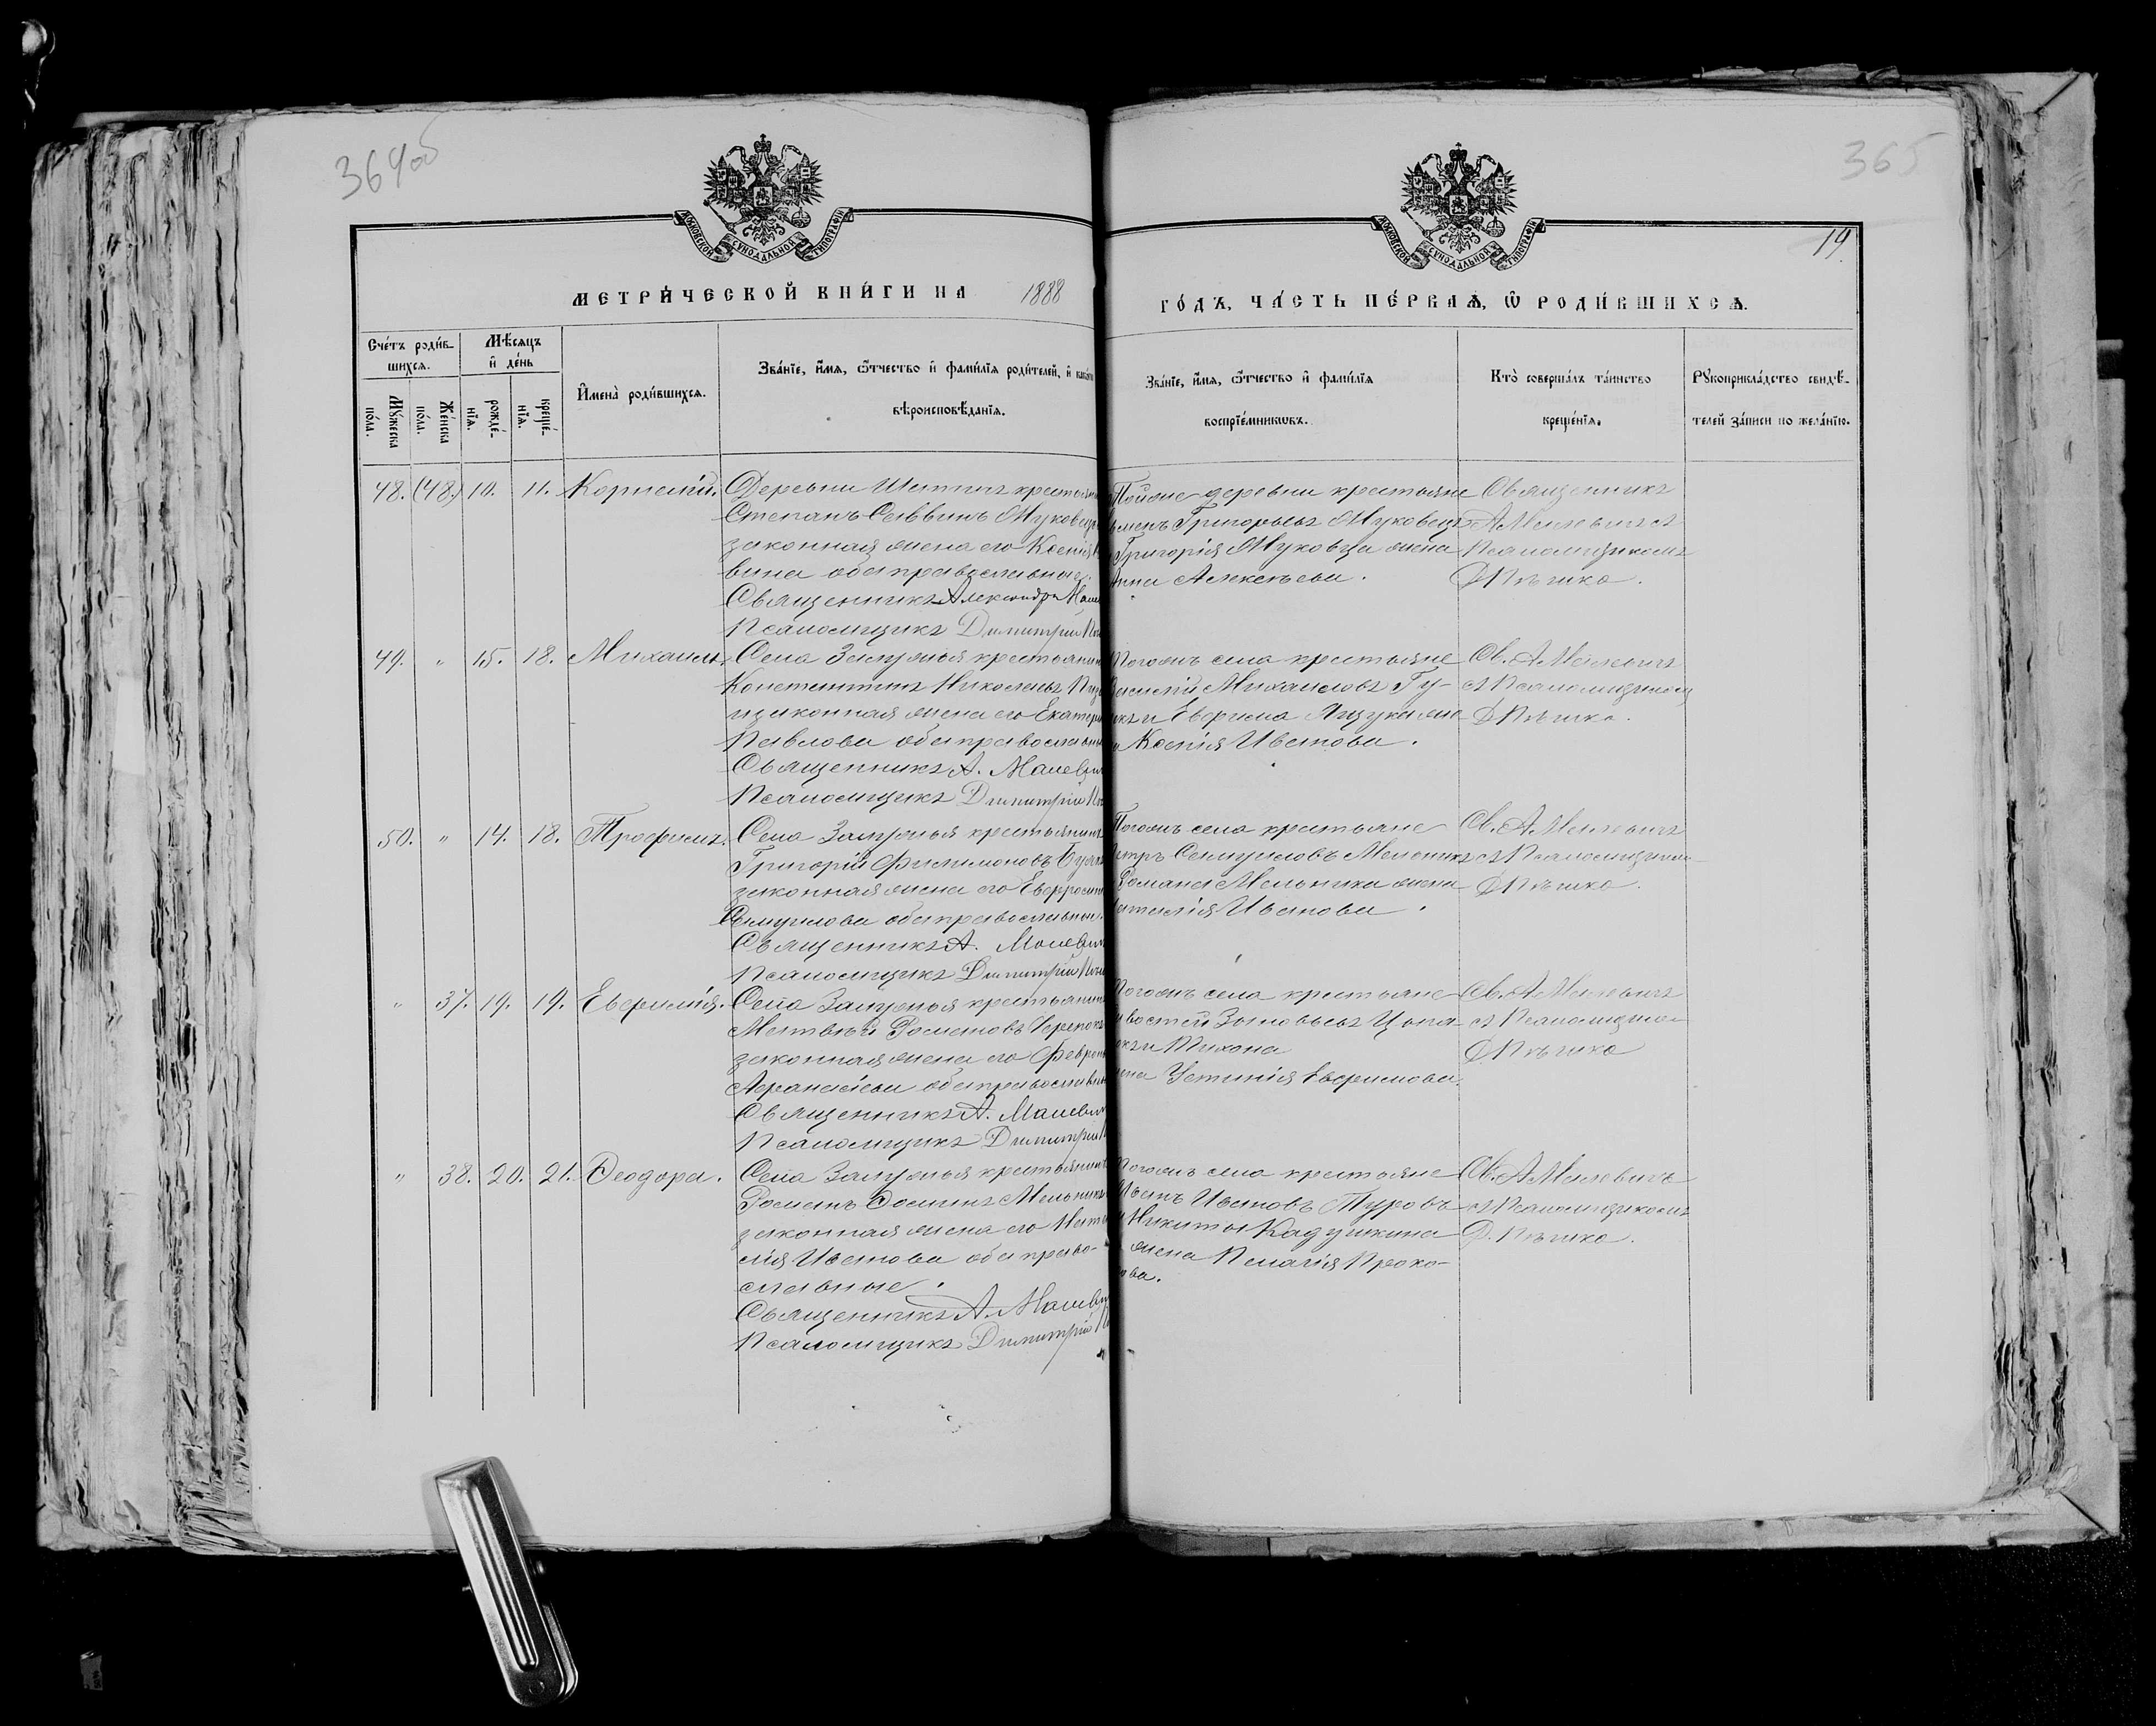 364об
365
19.
МОСКОВСКОЙ СУНОДАЛЬНОЙ ТИПОГРАФІИ
МОСКОВСКОЙ СУНОДАЛЬНОЙ ТИПОГРАФІИ
МЕТРИ́ЧЕСКОЙ КНИ́ГИ НА 1888
ГО́ДЪ, ЧА́СТЬ ПЕ́РВАѦ, Ѡ РОДИ́ВШИХСѦ.
Сче́тъ роди́в-
шихсѧ.
Мꙋ́жеска по́ла.
Же́нска по́ла.
Мѣ́сѧцъ
и де́нь
рожде́-
нїѧ.
креще́-
нїѧ.
Имена̀ роди́вшихсѧ.
Зва́нїе, и́мѧ, ѻ́тчество и фами́лїѧ роди́телей, и
вѣроисповѣ́данїѧ.
Зва́нїе, и́мѧ, ѻ́тчество и фами́лїѧ
воспрїе́мникѡвъ.
Кто̀ соверша́лъ та́инство
креще́нїѧ.
Рꙋкоприкла́дство свидѣ́-
телей за́писи по жела́нїю.
48. (48.) 10. 11. Корнилій.
Деревни крестьянинъ
Степанъ Саввинъ Жуковецъ
законная жена его Ксенія
вина оба православные.
Священникъ Александръ
Псаломщикъ Димитрій
Тойже деревни крестьяне
Григорьевъ Жуковецъ
Григорія Жуковца жена
Анна Алексѣева.
Священникъ
А Малевичъ съ
Псаломщикомъ
Д Пѣшко.
49. " 15. 18. Михаилъ.
Села Замужья крестьянинъ
Константинъ Николаевъ
законная жена его Екатерина
Павлова оба православные
Священникъ А. Малевичъ
Псаломщикъ Димитрій
Тогожъ села крестьяне
Василій Михайловъ Гу-
и Евфима Яцука жена
Ксенія Иванова.
Св. А Малевичъ
съ Псаломщикомъ
Д Пѣшко.
50. " 14. 18. Трофимъ.
Села Замужья крестьянинъ
Григорій Филимоновъ
законная жена его Евфросинія
Самуилова оба православные.
Священникъ А. Малевичъ
Псаломщикъ Димитрій
Тогожъ села крестьяне
Петръ Самуиловъ Мельникъ
Романа Мельника жена
Наталія Иванова.
Св. А Малевичъ
съ Псаломщикомъ
Д Пѣшко.
" 37. 19. 19. Евфимія.
Села Замужья крестьянинъ
Матвѣй Романовъ
законная жена его Февронія
Афанасіева оба православные
Священникъ А. Малевичъ
Псаломщикъ Димитрій
Тогожъ села крестьяне
Зиновьевъ Цопа-
и Тихона
жена Устинія Евфимова.
Св. А Малевичъ
съ Псаломщикомъ
Д Пѣшко
" 38. 20. 21. Ѳеодора.
Села Замужья крестьянинъ
Романъ Ѳоминъ Мельникъ
законная жена его Ната-
лія Иванова оба право-
славные.
Священникъ А. Малевичъ
Псаломщикъ Димитрій
Тогожъ села крестьяне
Иванъ Ивановъ Туровъ
Никиты Кадушкина
жена Пелагія Проко-
ова.
Св. А Малевичъ
съ Псаломщикомъ
Д. Пѣшко.